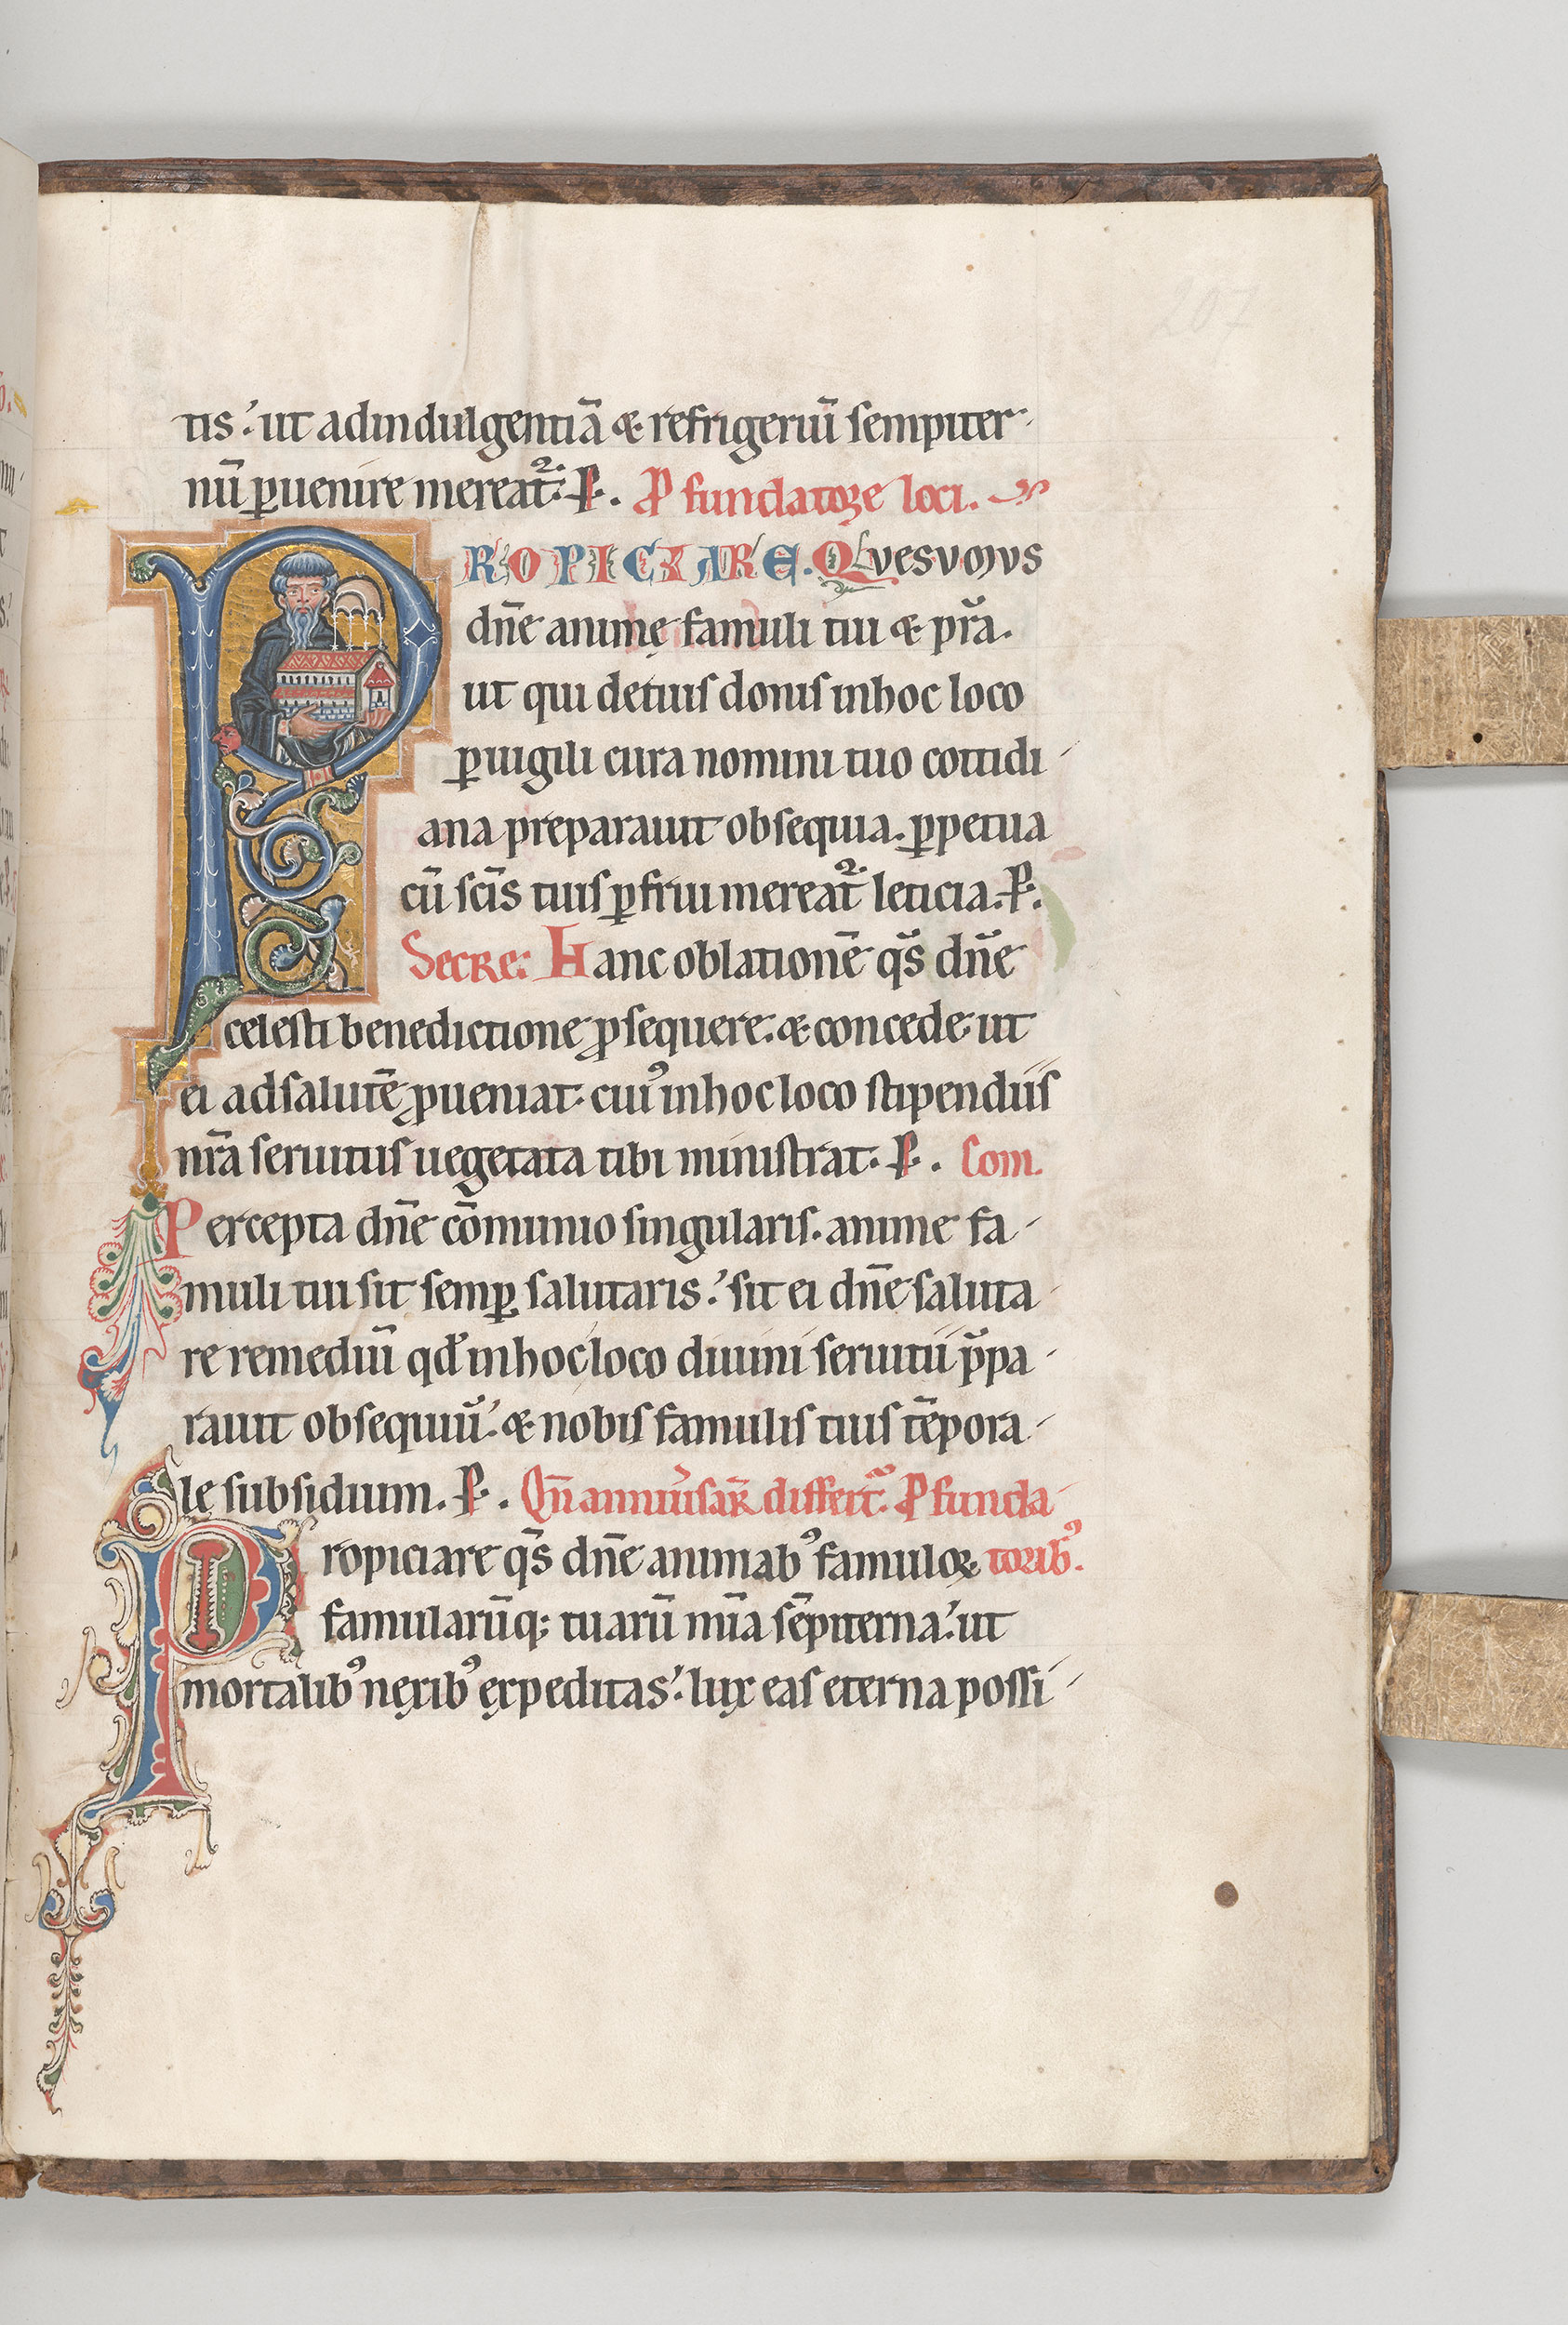 207
tis.' ut ad indulgentiā & refrigeriū sempiter-
nū ꝑuenire mereat᷑. P. P fundatore loci.
PROPICIARE. QUESUMUS
dn̄e animę famuli tui & pr̄a.
ut qui de tuis donis in hoc loco
ꝑuigili cura nomini tuo cottidi-
ana preparauit obsequia. ꝑpetua
cū scīs tuis ꝑfrui mereat᷑ leticia. P.
Secre: Hanc oblationē qs̄ dn̄e
celesti benedictione ꝓsequere. & concede ut
ei ad salutē ꝓueniat. cuiꝰ in hoc loco stipendiis
nr̄a seruitus uegetata tibi ministrat. P. Com.
Percepta dn̄e cōmunio singularis. anime fa-
muli tui sit semꝑ salutaris.' sit ei dn̄e saluta-
re remediū qđ in hoc loco diuini seruitii p̄pa-
rauit obsequiū. & nobis famulis tuis tēpora-
le subsidium. P. Qn̄ anniu̾sar̄ differt᷑. P funda-
Propiciare qs̄ dn̄e animabꝰ famuloꝝ toribꝰ.
famularūq; tuarū mīa sēpiterna.' ut
mortalibꝰ nexibꝰ expeditas.' lux eas eterna possi-